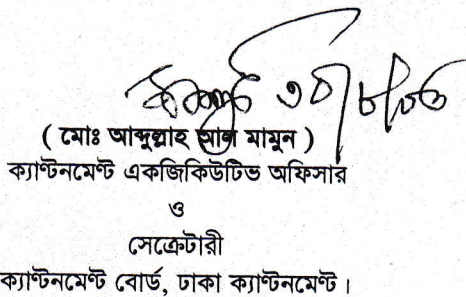 ( মোঃ আব্দুল্লাহ আল মামুন )
ক্যাণ্টনমেণ্ট একজিকিউটিভ অফিসার
ও
সেক্রেটারী
ক্যাণ্টনমেণ্ট বোর্ড, ঢাকা ক্যাণ্টনমেণ্ট।